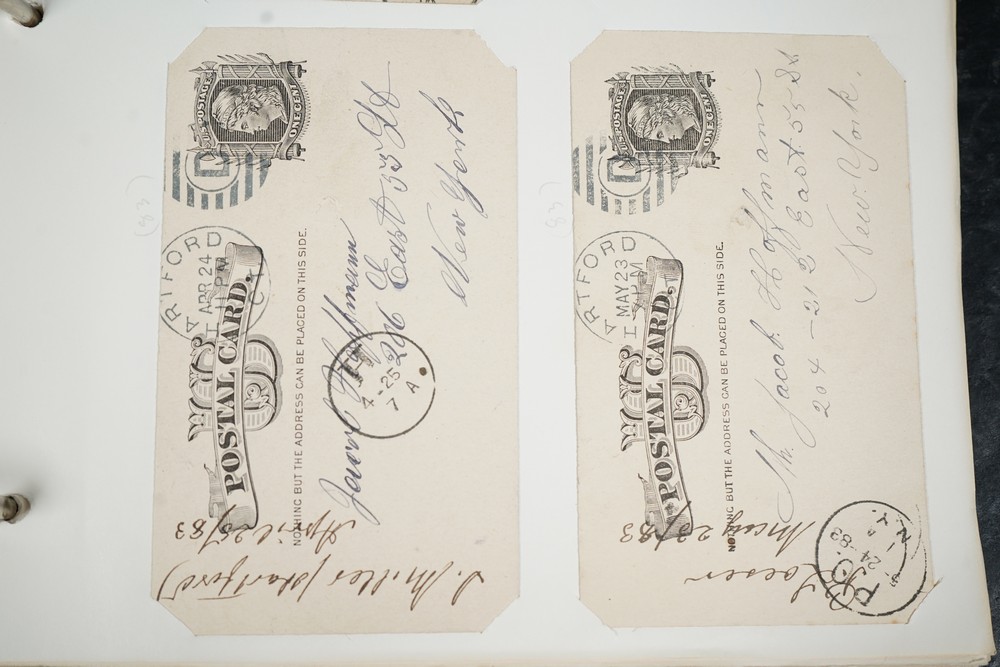 U.S. POSTAGE
ONE CENT
D
HARTFORD
APR 24
1 PM
CT
U.S.
POSTAL CARD.
NOTHING BUT THE ADDRESS CAN BE PLACED ON THIS SIDE.
Hoffmann
206 East 55 St
New York
4-25
7 A
April 25/83
S. Miller (Hartford)
U.S. POSTAGE
ONE CENT
D
HARTFORD
MAY 23
PM
U.S.
POSTAL CARD.
NOTHING BUT THE ADDRESS CAN BE PLACED ON THIS SIDE.
Mr. Jacob Hoffmann
204 – 212 East. 55 St
New. York.
P.O.
5-24-83
1 A
N.Y.
May 23/83
Loeser
(83)
(83)